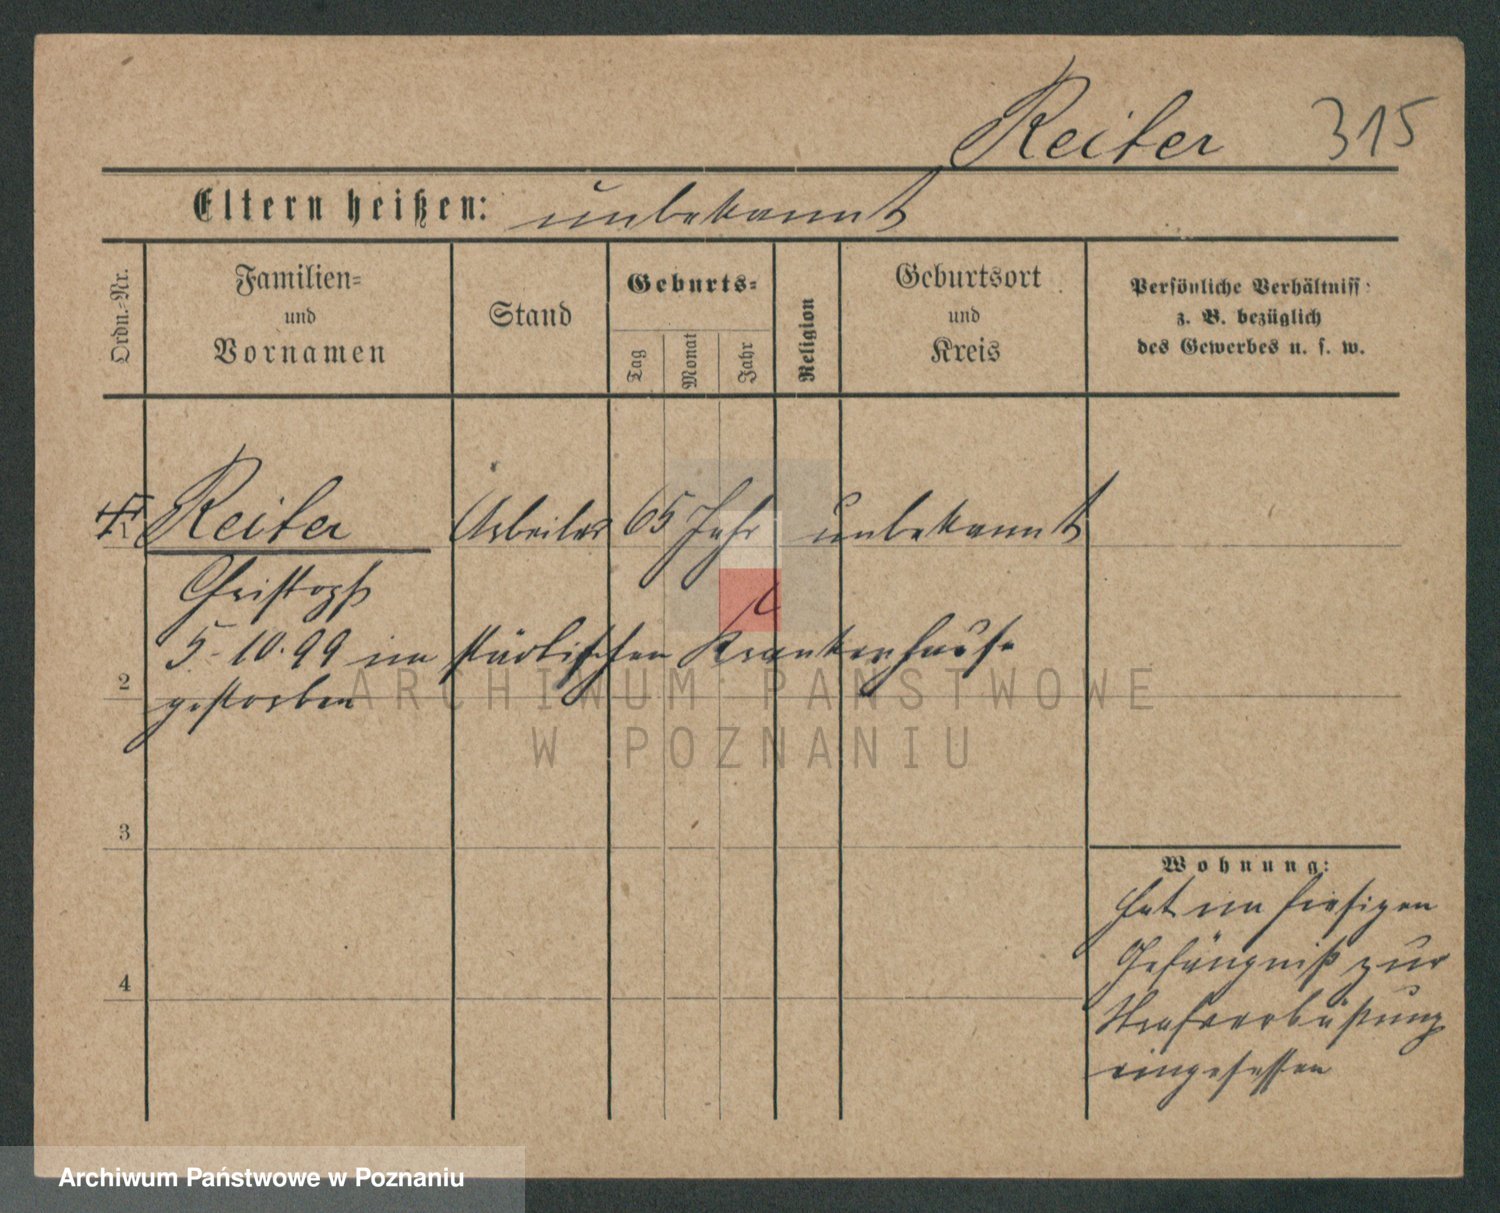 Reiter 315
Eltern heißen: unbekannt
Ordn.-Nr.
Familien-
und
Vornamen
Stand
Geburts-
Tag
Monat
Jahr
Religion
Geburtsort
und
Kreis
Persönliche Verhältniss
z. B. bezüglich
des Gewerbes u. s. w.
Reiter Arbeiter 65 Jahr unbekannt
Christoph
5-10.99 im städtischen Krankenhause
2 gestorben
ARCHIWUM PAŃSTWOWE
W POZNANIU
3
4
Wohnung:
hat im hiesigen
Gefängniß zur
Strafverbüßung
eingesessen
Archiwum Państwowe w Poznaniu